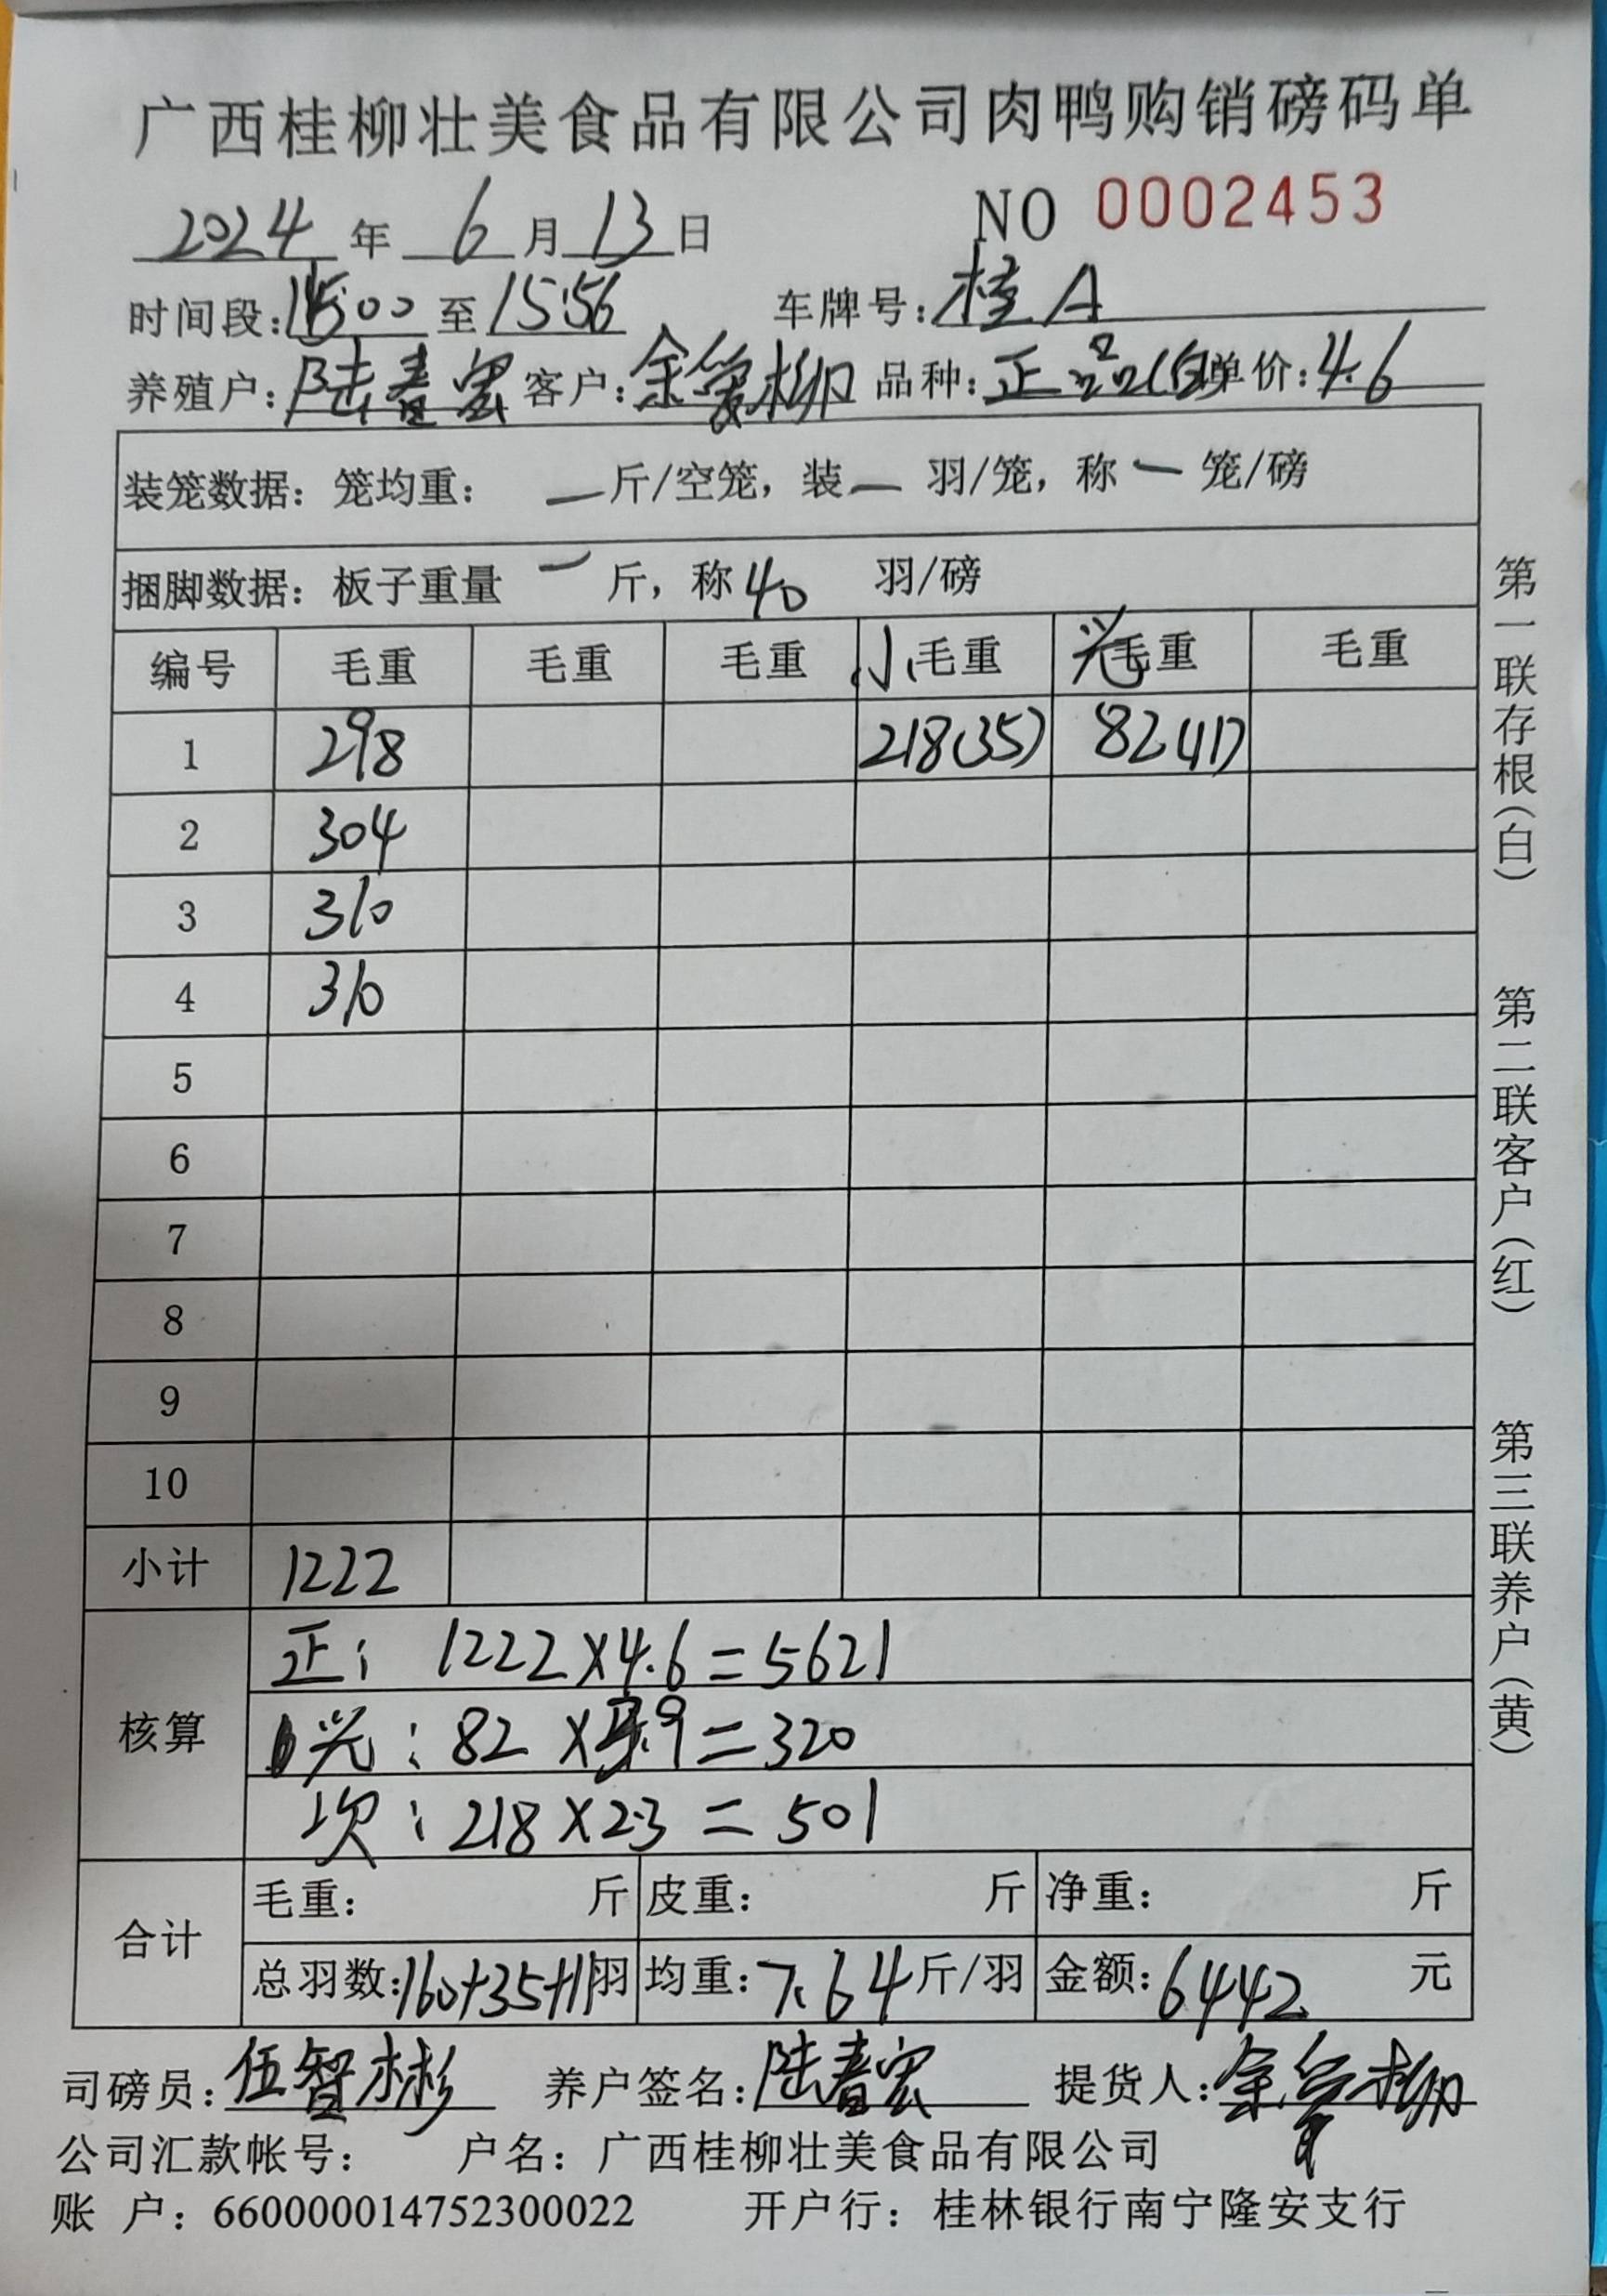 广西桂柳壮美食品有限公司肉鸭购销磅码单
2024 年 6 月 13 日 NO 0002453
时间段: 15:00 至 15:56 车牌号: 桂A
养殖户: 陆春宏 客户: 余爱柳 品种: 正品(白) 单价: 4.6
装笼数据: 笼均重: — 斤/空笼, 装 — 羽/笼, 称 — 笼/磅
捆脚数据: 板子重量 — 斤, 称 40 羽/磅
编号 毛重 毛重 毛重 小毛重 毛重 毛重
1 298 218(35) 82(11)
2 304
3 310
4 310
5
6
7
8
9
10
小计 1222
核算
正: 1222×4.6=5621
: 82×3.9=320
次: 218×2.3=501
合计 毛重: 斤 皮重: 斤 净重: 斤
总羽数: 160+35+11 羽 均重: 7.64 斤/羽 金额: 6442 元
司磅员: 伍智彬 养户签名: 陆春宏 提货人: 余爱柳
公司汇款帐号: 户名: 广西桂柳壮美食品有限公司
账 户: 660000014752300022 开户行: 桂林银行南宁隆安支行
第一联存根(白) 第二联客户(红) 第三联养户(黄)